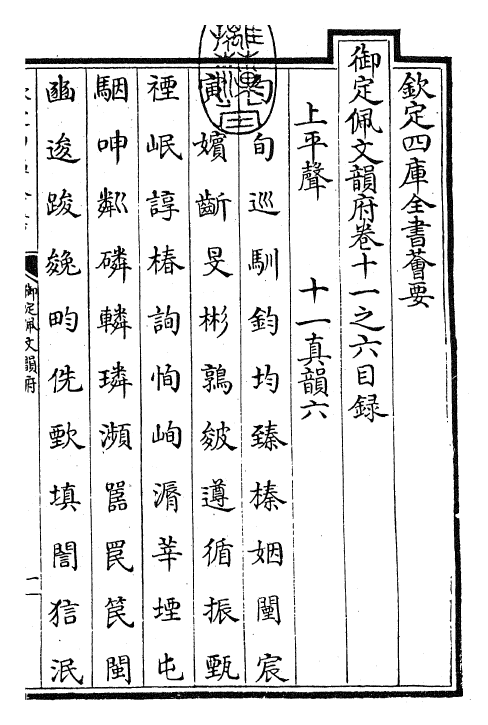 欽定四庫全書薈要
御定佩文韻府卷十一之六目録
上平聲 十一真韻六
旬巡馴鈞均臻榛姻闉宸
嬪齗旻彬鶉皴遵循振甄
禋岷諄椿詢恂峋漘莘堙屯
駰呻粼磷轔璘瀕嚚罠筠閩
豳逡踆㕙畇侁歅填誾狺泯
御定佩文韻府